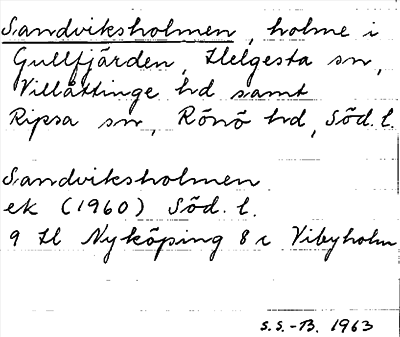 Sandviksholmen, holme i
Gullfjärden, Helgesta sn,
Villåttinge hd samt
Ripsa sn, Rönö hd, Söd. l.
Sandviksholmen
ek (1960) Söd. l.
9 H Nyköping 8 c Vibyholm
S.S.-B. 1963